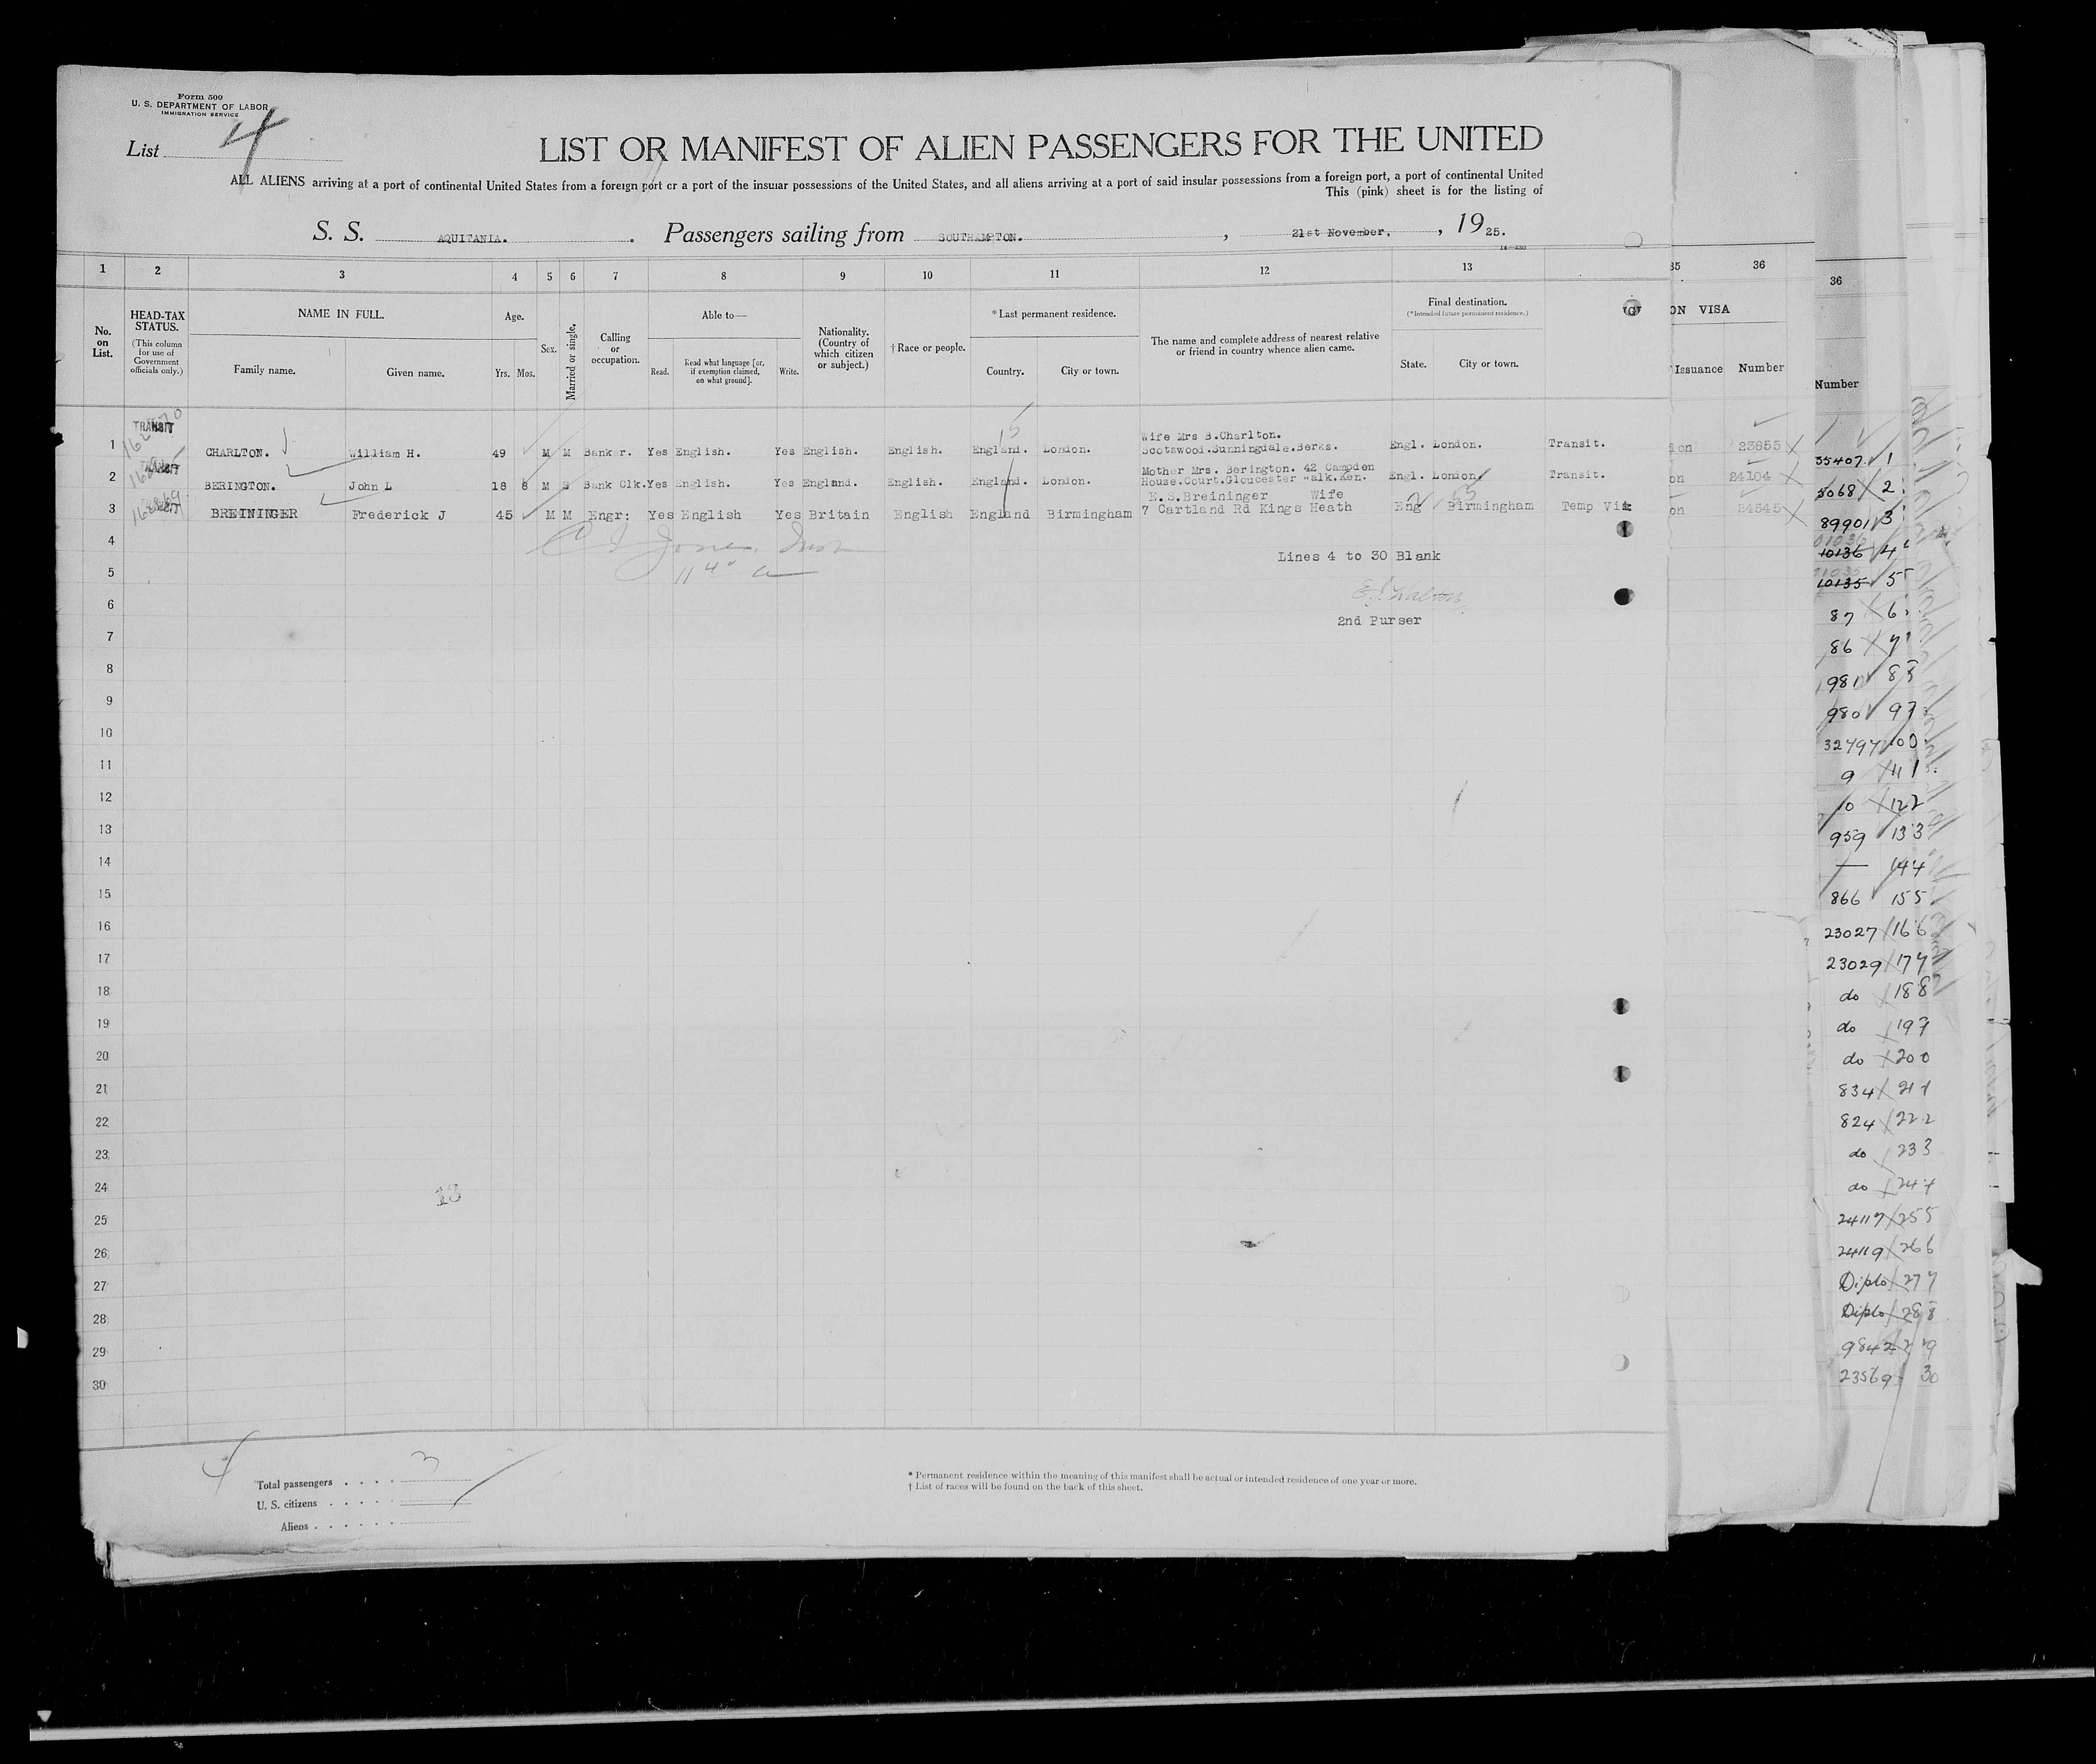 Form 500
U. S. DEPARTMENT OF LABOR
IMMIGRATION SERVICE
List 4
LIST OR MANIFEST OF ALIEN PASSENGERS FOR THE UNITED
ALL ALIENS arriving at a port of continental United States from a foreign port or a port of the insular possessions of the United States, and all aliens arriving at a port of said insular possessions from a foreign port, a port of continental United
This (pink) sheet is for the listing of
S. S. AQUITANIA. Passengers sailing from SOUTHAMPTON. , 21st November, , 19 25.
1 2 3 4 5 6 7 8 9 10 11 12 13 35 36
36
No. on List.
HEAD-TAX STATUS.
(This column for use of Government officials only.)
NAME IN FULL.
Family name. Given name.
Age.
Yrs. Mos.
Sex.
Married or single.
Calling or occupation.
Able to—
Read. Read what language [or, if exemption claimed, on what ground]. Write.
Nationality. (Country of which citizen or subject.)
†Race or people.
*Last permanent residence.
Country. City or town.
The name and complete address of nearest relative or friend in country whence alien came.
Final destination.
(*Intended future permanent residence.)
State. City or town.
ON VISA
Issuance Number
Number
1 TRANSIT CHARLTON. William H. 49 M M Banker. Yes English. Yes English. English. England. London. Wife Mrs B.Charlton. Scotswood.Sunningdale.Berks. Engl. London. Transit. ion 23855
2 TRANSIT BERINGTON. John L 18 8 M S Bank Clk. Yes English. Yes England. English. England. London. Mother Mrs. Berington. 42 Campden House.Court.Gloucester Walk.Ken. Engl. London. Transit. on 24104
3 BREININGER Frederick J 45 M M Engr: Yes English Yes Britain English England Birmingham E.S.Breininger Wife 7 Cartland Rd Kings Heath Eng Birmingham Temp Vis on 24545
4
Lines 4 to 30 Blank
5
6
2nd Purser
7
8
9
10
11
12
13
14
15
16
17
18
19
20
21
22
23
24
13
25
26
27
28
29
30
35407 1
5068 2
89901 3
10136 4
10135 5
87 6
86 7
981 8
980 9
32797
9
10
959
—
866
23027
23029
do
do
do
834
824
do
do
24117
24119
Diplo
Diplo
9842
23569 30
4
Total passengers . . . . 3
U. S. citizens . . . . .
Aliens . . . . . .
* Permanent residence within the meaning of this manifest shall be actual or intended residence of one year or more.
† List of races will be found on the back of this sheet.